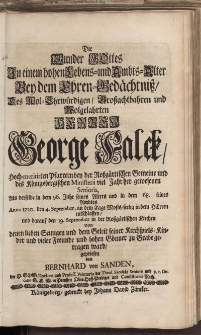 Die
Wunder GOttes
In einem hohen Lebens- und Ambts-Alter
Bey dem Ehren-Gedächtnüß/
Des Wol-Ehrwürdigen/ Großachtbahren und
Wolgelahrten
HERREN
George Falck/
Hochverdienten Pfarrern der Roßgärtischen Gemeine und
des Königsbergischen Ministerii viel Jahr her gewesenen
Senioris,
Als derselbe in dem 96. Jahr seines Alters und in dem 68. seines
Ambtes
Anno 1700. den 4. September, am dem Tage Mosis/ selig in dem HErren
entschlaffen/
und darauf den 19. September in der Roßgärtischen Kirchen
von
denen lieben Seinigen und dem Geleit seiner Kirchspiels-Kin-
der und vieler Freunde und hohen Gönner zu Grabe ge-
tragen ward/
gepriesen
von
BERNHARD von SANDEN,
Königsberg/ gedruckt bey Johann David Zäncker.